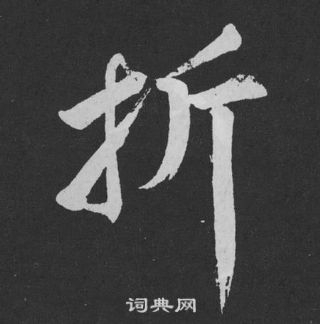 折
词典网